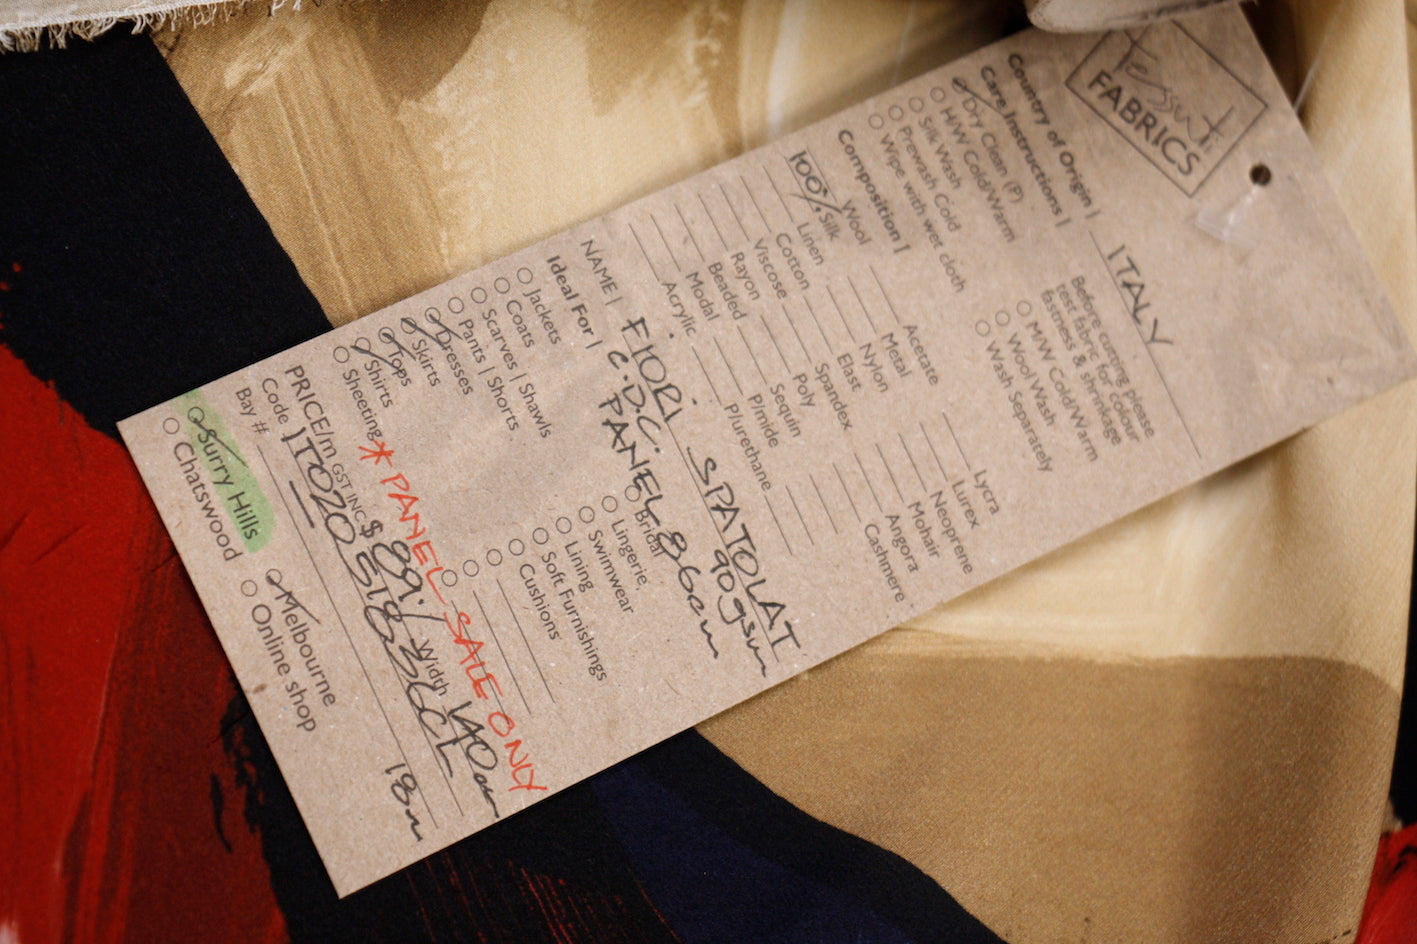 Tessuti
FABRICS
Country of Origin | ITALY
Care Instructions |
Dry Clean (P)
H/W Cold/Warm
Silk Wash
Prewash Cold
Wipe with wet cloth
Before cutting please
test fabric for colour
fastness & shrinkage
M/W Cold/Warm
Wool Wash
Wash Separately
Composition |
Wool
100% Silk
Linen
Cotton
Viscose
Rayon
Beaded
Modal
Acrylic
Acetate
Metal
Nylon
Elast
Spandex
Poly
Sequin
P/mide
P/urethane
Lycra
Lurex
Neoprene
Mohair
Angora
Cashmere
NAME | FIORI SPATOLAT
C.D.C. 90gsm
PANEL 86cm
Ideal For |
Jackets
Coats
Scarves | Shawls
Pants | Shorts
Dresses
Skirts
Tops
Shirts
Sheeting
Bridal
Lingerie
Swimwear
Lining
Soft Furnishings
Cushions
* PANEL SALE ONLY
PRICE/m GST INC $ 89./ Width 140cm
Code
Bay #
18m
Surry Hills
Chatswood
Melbourne
Online shop